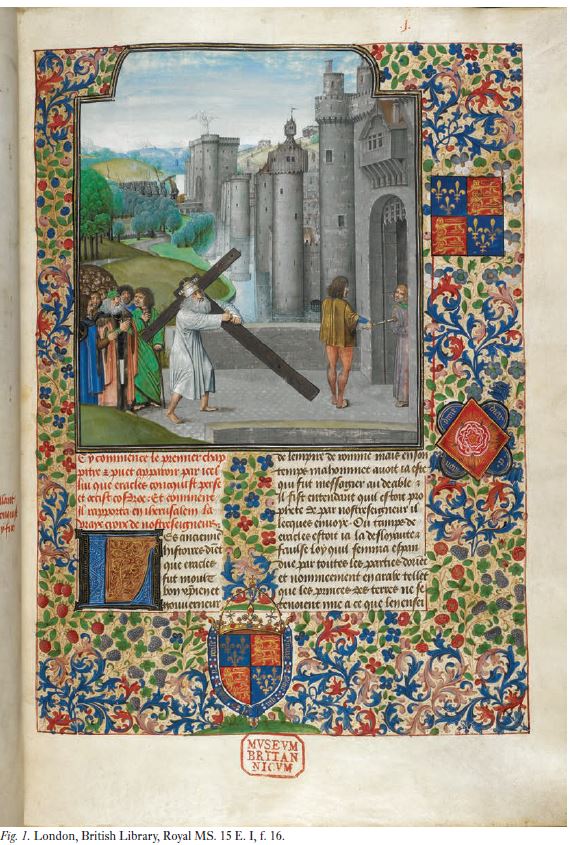 j.
Cy commence le premier chap
pitre
que eracles conquist perse
et occist cosdroe: Et comment
il rapporta en iherusalem la
vraye croix de nostreseigneur.
es ancienne
histoires diet
que eracle
fut moult
bon xpienet
gouuerneur
de lempire de romme mais en son
temps mahommet auoit ia este
qui fut messagier au deable
il fist entendant quil estoit pro
phete et par nostreseigneur il
lecques enuoye. Ou temps de
eracles estoit ia la desloyaute
faulse loy quil semma espan
due par toutes les parties dorient
et nommeement en arabe tellet
que les princes des terres ne se
tenoient mie a ce que len enseï
MVSEVM
BRITAN
NICVM
Fig. 1. London, British Library, Royal MS. 15 E. I, f. 16.